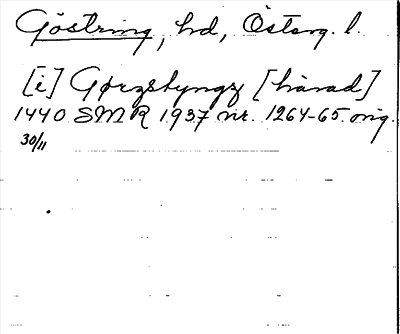 Göstring, hd, Östarg. l.
[i] Gørzstyngz [härad]
1440 SMR 1937 nr. 1264-65. orig.
30/11